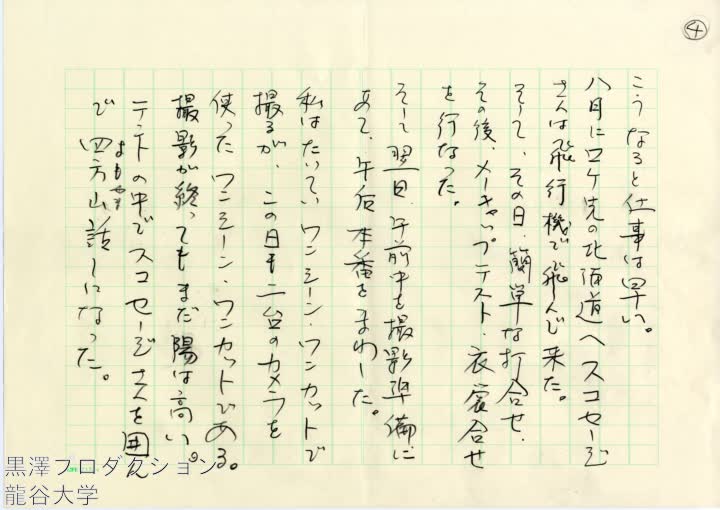 ④
こうなると仕事は早い。
八月にロケ先の北海道へスコセージ
さんは飛行機で飛んで来た。
そして、その日、簡単な打合せ、
その後、メーキャップテスト、衣裳合せ
を行なった。
そして翌日、午前中を撮影準備に
あて、午后本番をまわした。
私はたいていワンシーン・ワンカットで
撮るが、この日も二台のカメラを
使ったワンシーン・ワンカットである。
撮影が終ってもまだ陽は高い。
テントの中でスコセージさんを囲ん
で四方山話しになった。
よもやま
黒澤プロダクション
龍谷大学